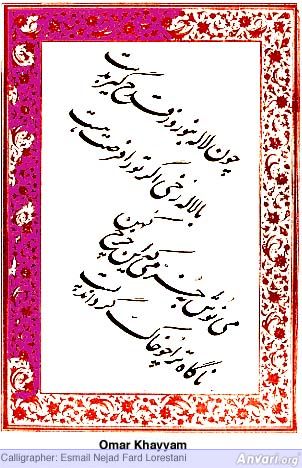 چون لاله بنوروز قدح گیر بدست
با لاله رخی اگر تو را فرصت هست
می نوش بخرمی که این چرخ کهن
ناگاه ترا چو خاک گرداند پست
Omar Khayyam
Calligrapher: Esmail Nejad Fard Lorestani
Anvari.org